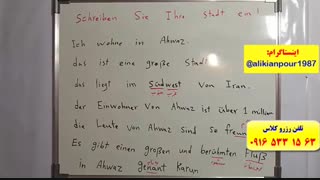 Schreiben Sie Ihre Stadt ein!
Ich wohne in Ahwaz
das ist eine große Stadt
das liegt im Südwest von Iran.
جنوب غرب
der Einwohner von Ahwaz ist über 1 million
die Leute von Ahwaz sind so
Es gibt einen großen und berühmten Fluß
in Ahwaz genant Karun
اینستاگرام:
@alikianpour1987
تلفن رزرو کلاس
۰۹۱۶ ۵۳۳ ۱۵ ۶۳